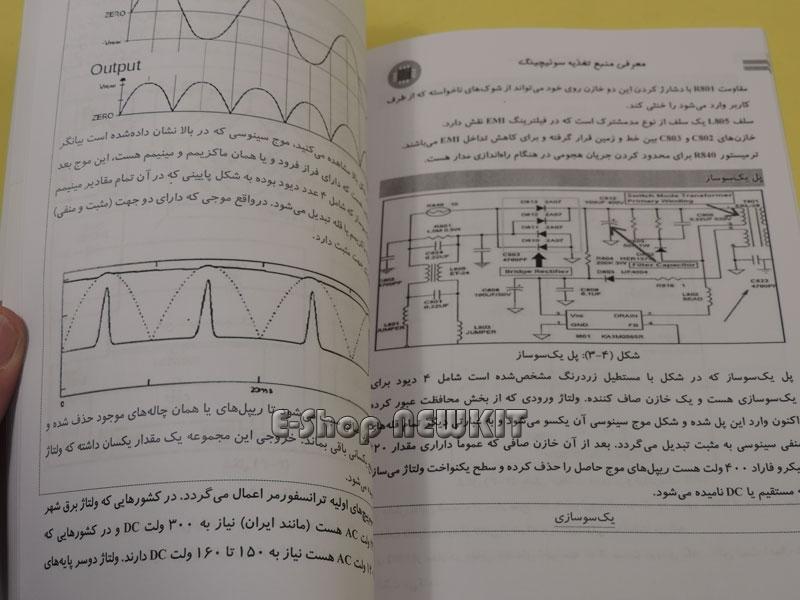 معرفی منبع تغذیه سوئیچینگ
مقاومت R801 با دشارژ کردن این دو خازن روی خود می‌تواند از شوک‌های ناخواسته که از طرف
کاربر وارد می‌شود را خنثی کند.
سلف L805 یک سلف از نوع مدمشترک است که در فیلترینگ EMI نقش دارد.
خازن‌های C802 و C803 بین خط و زمین قرار گرفته و برای کاهش تداخل EMI می‌باشند.
ترمیستور R840 برای محدود کردن جریان هجومی در هنگام راه‌اندازی مدار هست.
پل یک‌سوساز
Switch Mode Transformer
Primary Winding
Bridge Rectifier
Filter Capacitor
Vcc
DRAIN
GND
FB
شکل (۴-۳): پل یک‌سوساز
پل یک‌سوساز که در شکل با مستطیل زردرنگ مشخص‌شده است شامل ۴ دیود برای
یک‌سوسازی هست و یک خازن صاف کننده. ولتاژ ورودی که از بخش محافظت عبور کرده
اکنون وارد این پل شده و شکل موج سینوسی آن یکسو می‌شود و به عبارتی دیگر
منفی سینوسی به مثبت تبدیل می‌گردد. بعد از آن خازن صافی که عموماً داراری مقدار
فاراد ۴۰۰ ولت هست ریپل‌های موج حاصل را حذف کرده و سطح یکنواخت ولتاژ
مستقیم یا DC نامیده می‌شود.
یک‌سوسازی
ZERO
Output
ZERO
بالا مشاهده می‌کنید، موج سینوسی که در بالا نشان داده‌شده است بیانگر
که دارای فراز فرود و یا همان ماکزیمم و مینیمم هست، این موج بعد
که شامل ۴ عدد دیود بوده به شکل پایینی که در آن تمام مقادیر مینیمم
یا قله تبدیل می‌شود. درواقع موجی که دارای دو جهت (مثبت و منفی)
مثبت دارد.
0
20ms
تا ریپل‌های یا همان چاله‌های موجود حذف شده و
باقی بماند. خروجی این مجموعه یک مقدار یکسان داشته که ولتاژ
می‌شود.
های اولیه ترانسفورمر اعمال می‌گردد. در کشورهایی که ولتاژ برق شهر
ولت AC هست (مانند ایران) نیاز به ۳۰۰ ولت DC و در کشورهایی که
ولت AC هست نیاز به ۱۵۰ تا ۱۶۰ ولت DC دارند. ولتاژ دوسر پایه‌های
E-Shop NEWKIT